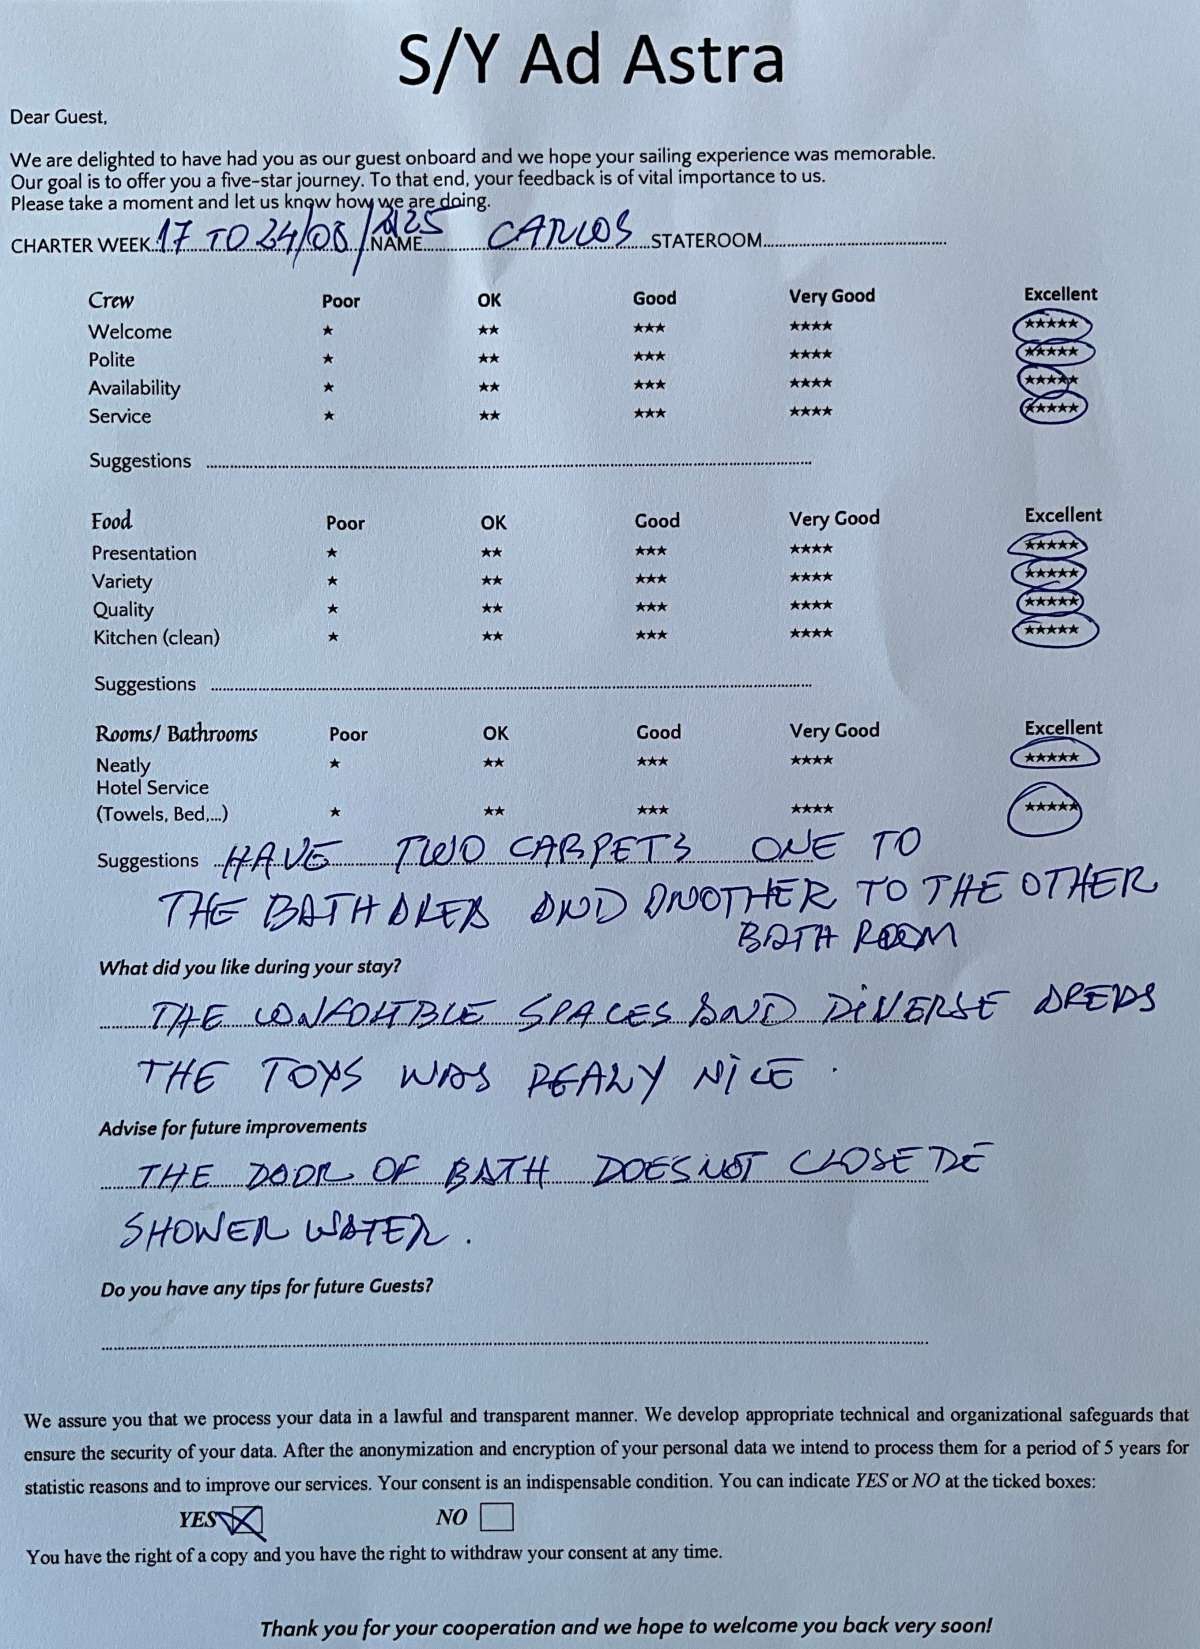 S/Y Ad Astra
Dear Guest,
We are delighted to have had you as our guest onboard and we hope your sailing experience was memorable.
Our goal is to offer you a five-star journey. To that end, your feedback is of vital importance to us.
Please take a moment and let us know how we are doing.
CHARTER WEEK 17 TO 24/08/2025 NAME CARLOS STATEROOM
Crew Poor OK Good Very Good Excellent
Welcome ★ ★★ ★★★ ★★★★ ★★★★★
Polite ★ ★★ ★★★ ★★★★ ★★★★★
Availability ★ ★★ ★★★ ★★★★ ★★★★★
Service ★ ★★ ★★★ ★★★★ ★★★★★
Suggestions
Food Poor OK Good Very Good Excellent
Presentation ★ ★★ ★★★ ★★★★ ★★★★★
Variety ★ ★★ ★★★ ★★★★ ★★★★★
Quality ★ ★★ ★★★ ★★★★ ★★★★★
Kitchen (clean) ★ ★★ ★★★ ★★★★ ★★★★★
Suggestions
Rooms/ Bathrooms Poor OK Good Very Good Excellent
Neatly ★ ★★ ★★★ ★★★★ ★★★★★
Hotel Service
(Towels, Bed,...) ★ ★★ ★★★ ★★★★ ★★★★★
Suggestions HAVE TWO CARPETS ONE TO
THE BATH AREA AND ANOTHER TO THE OTHER
BATH ROOM
What did you like during your stay?
THE CONFORTBLE SPACES AND DIVERSE AREAS
THE TOYS WAS REALY NICE.
Advise for future improvements
THE DOOR OF BATH DOES NOT CLOSE DE
SHOWER WATER.
Do you have any tips for future Guests?
We assure you that we process your data in a lawful and transparent manner. We develop appropriate technical and organizational safeguards that
ensure the security of your data. After the anonymization and encryption of your personal data we intend to process them for a period of 5 years for
statistic reasons and to improve our services. Your consent is an indispensable condition. You can indicate YES or NO at the ticked boxes:
YES NO
You have the right of a copy and you have the right to withdraw your consent at any time.
Thank you for your cooperation and we hope to welcome you back very soon!